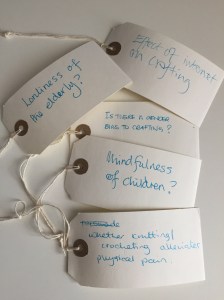 Effect of internet
on Crafting
Lonliness of
the elderly?
IS THERE A GENDER
BIAS TO CRAFTING?
Mindfulness
of Children?
whether knitting/
crocheting alleviates
physical pain.